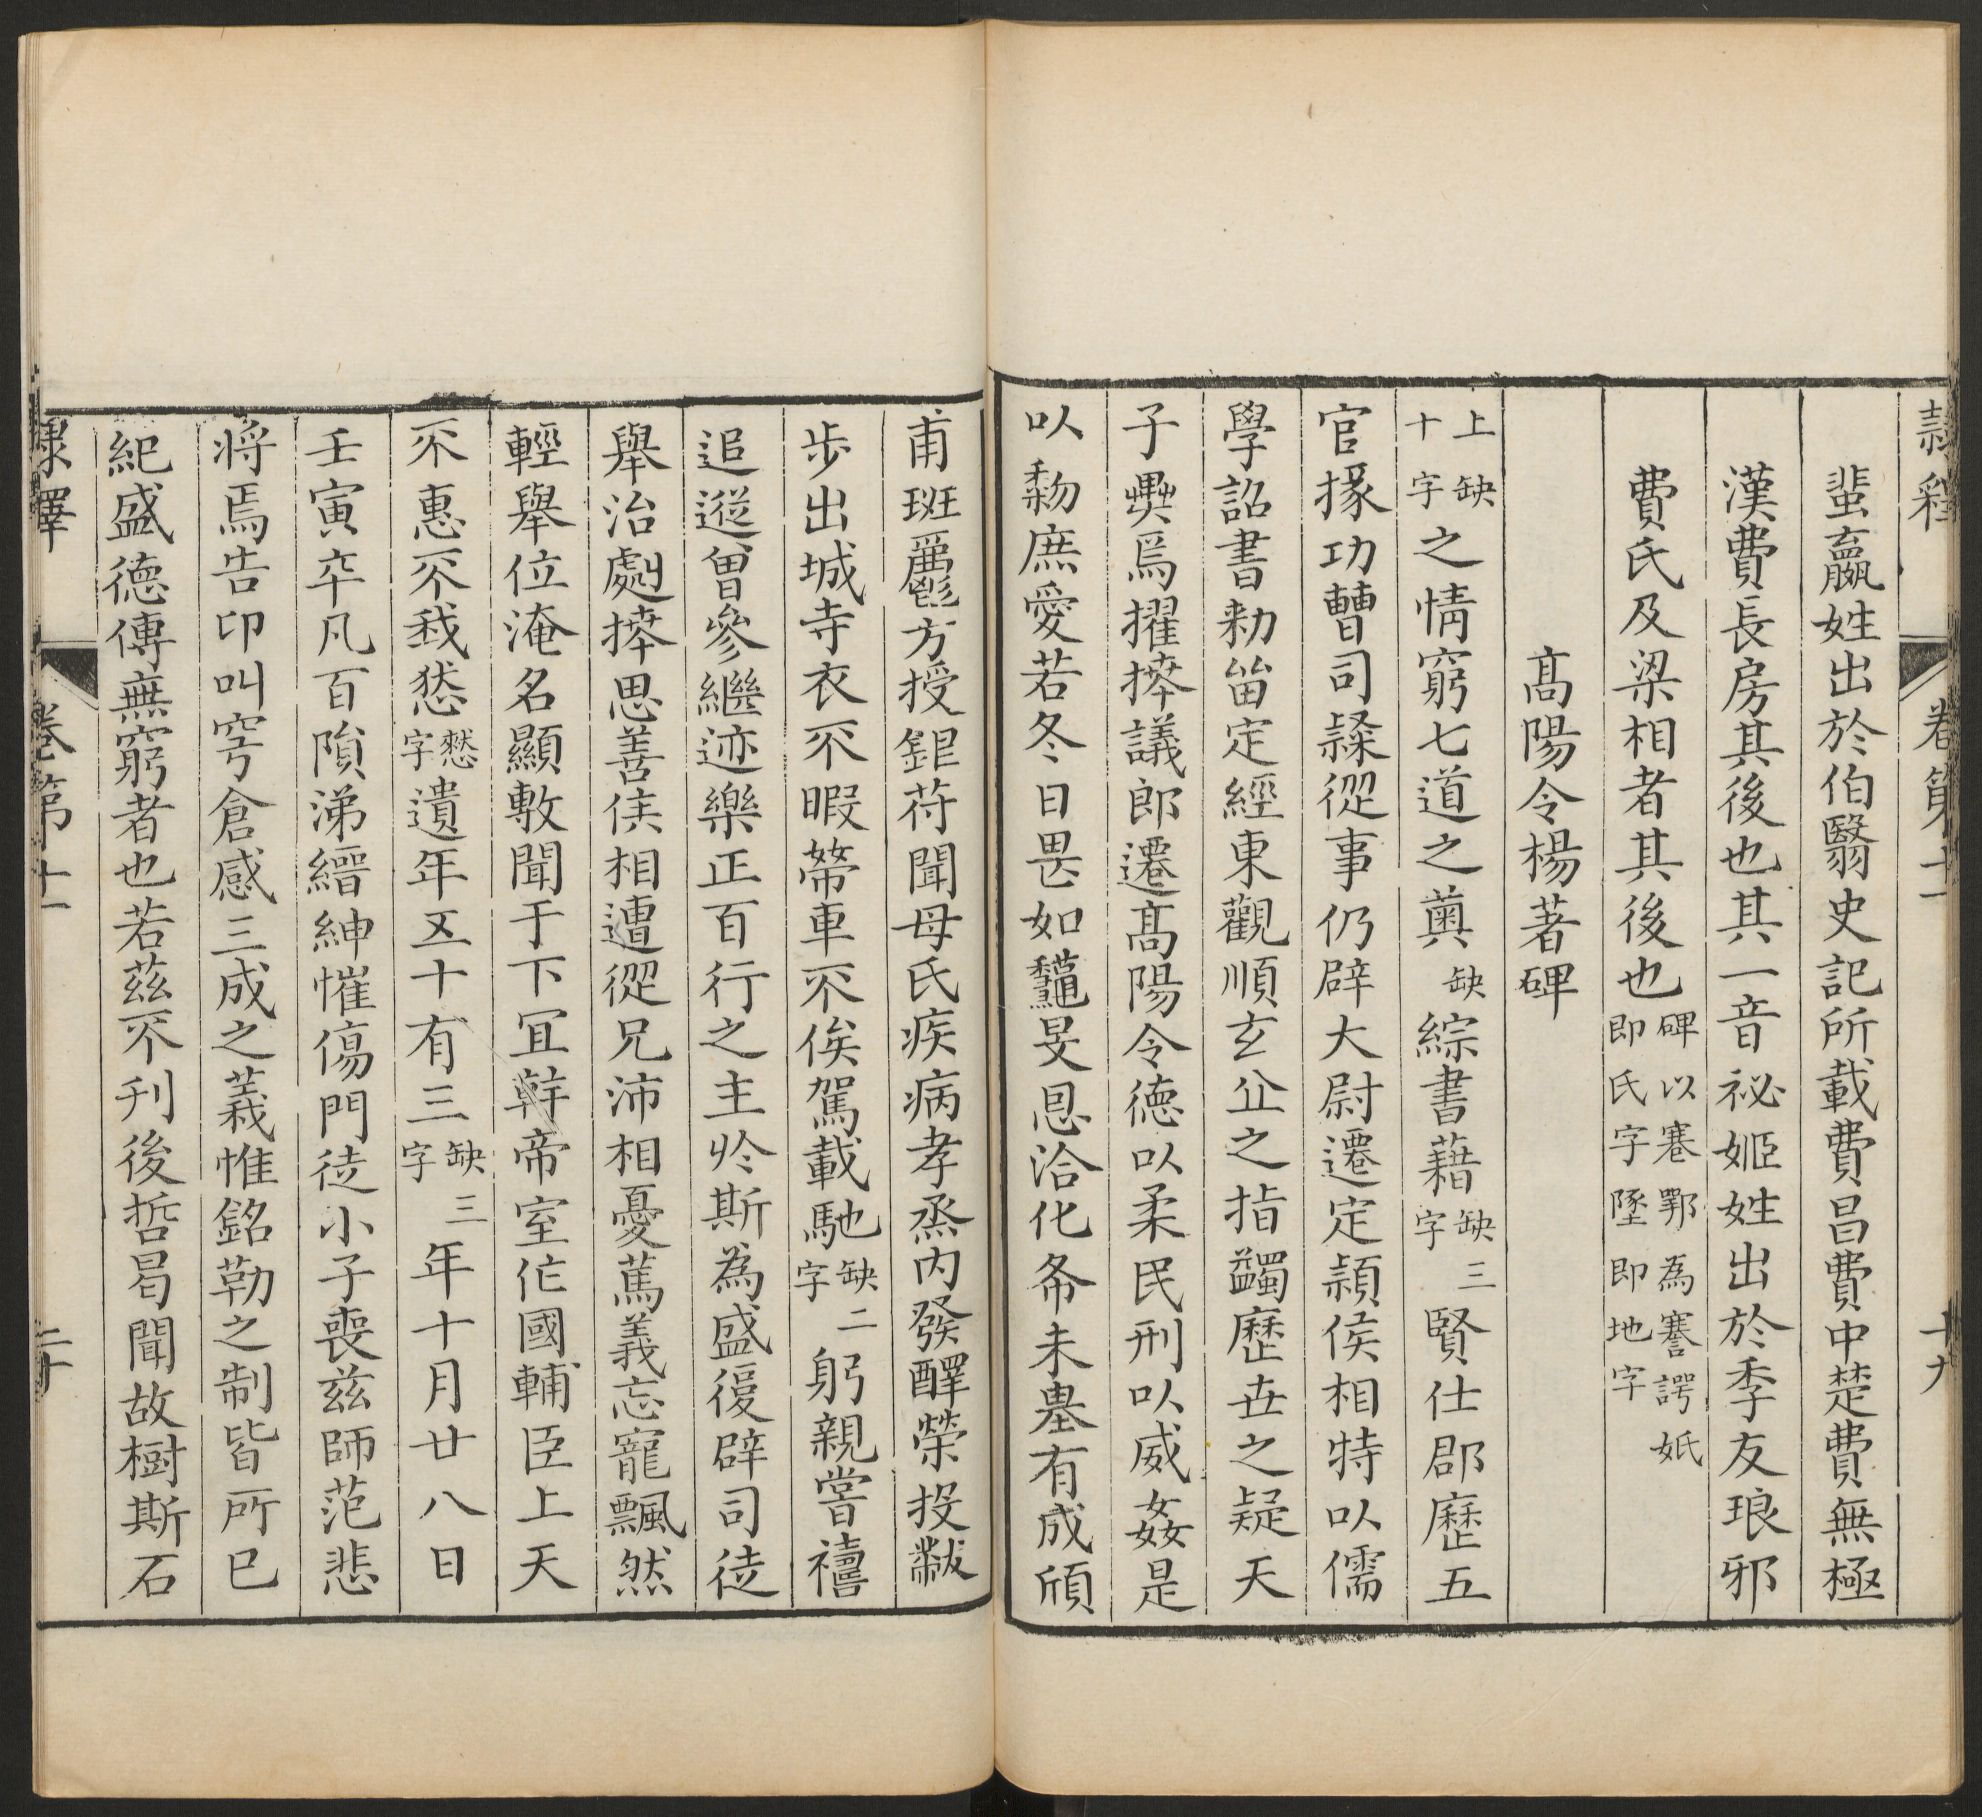 隸釋 卷第十一 十九
蜚嬴姓出於伯翳史記所載費昌費中楚費無極
漢費長房其後也其一音祕姬姓出於季友琅邪
費氏及梁相者其後也碑以蹇鄂為謇諤妧即氏字墜即地字
高陽令楊著碑
上缺十字之情窮七道之薁缺綜書藉缺三字賢仕郡歷五
官掾功曹司隸從事仍辟大尉遷定潁侯相特以儒
學詔書勑留定經東觀順玄丘之指蠲歷世之疑天
子異焉擢拜議郎遷高陽令德以柔民刑以威姦是
以黎庶愛若冬日畏如旻恩洽化布未朞有成頎
甫班方授銀苻聞母氏疾病孝烝內發醳榮投黻
步出城寺衣不暇帶車不俟駕載馳缺二字躬親嘗禱
追蹤曾參繼迹樂正百行之主於斯為盛復辟司徒
舉治劇拜思善侯相遭從兄沛相憂篤義忘寵飄然
輕舉位淹名顯敷聞于下宜幹帝室作國輔臣上天
不惠不我憖憖字遺年五十有三缺三字年十月廿八日
壬寅卒凡百隕涕縉紳惟傷門徒小子喪茲師范悲
將焉告卬叫穹倉感三成之義惟銘勒之制皆所已
紀盛德傳無窮者也若茲不刊後哲曷聞故樹斯石
隸釋 卷第十一 二十